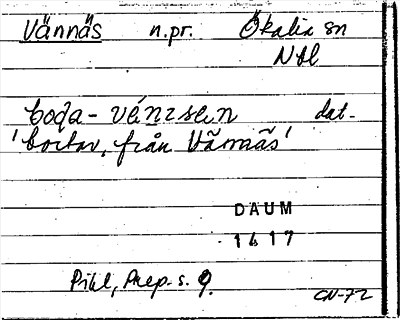 Vännäs n.pr. Ökalix sn
Nbl
boda-vénzsen dat.
'bortav, från Vännäs'
DAUM
1417
Pihl, Prep. s. 9.
CN-72